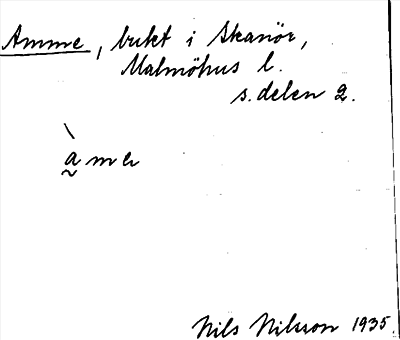 Amme, bukt i Skanör,
Malmöhus l.
s. delen 2.
àme
Nils Nilsson 1935.